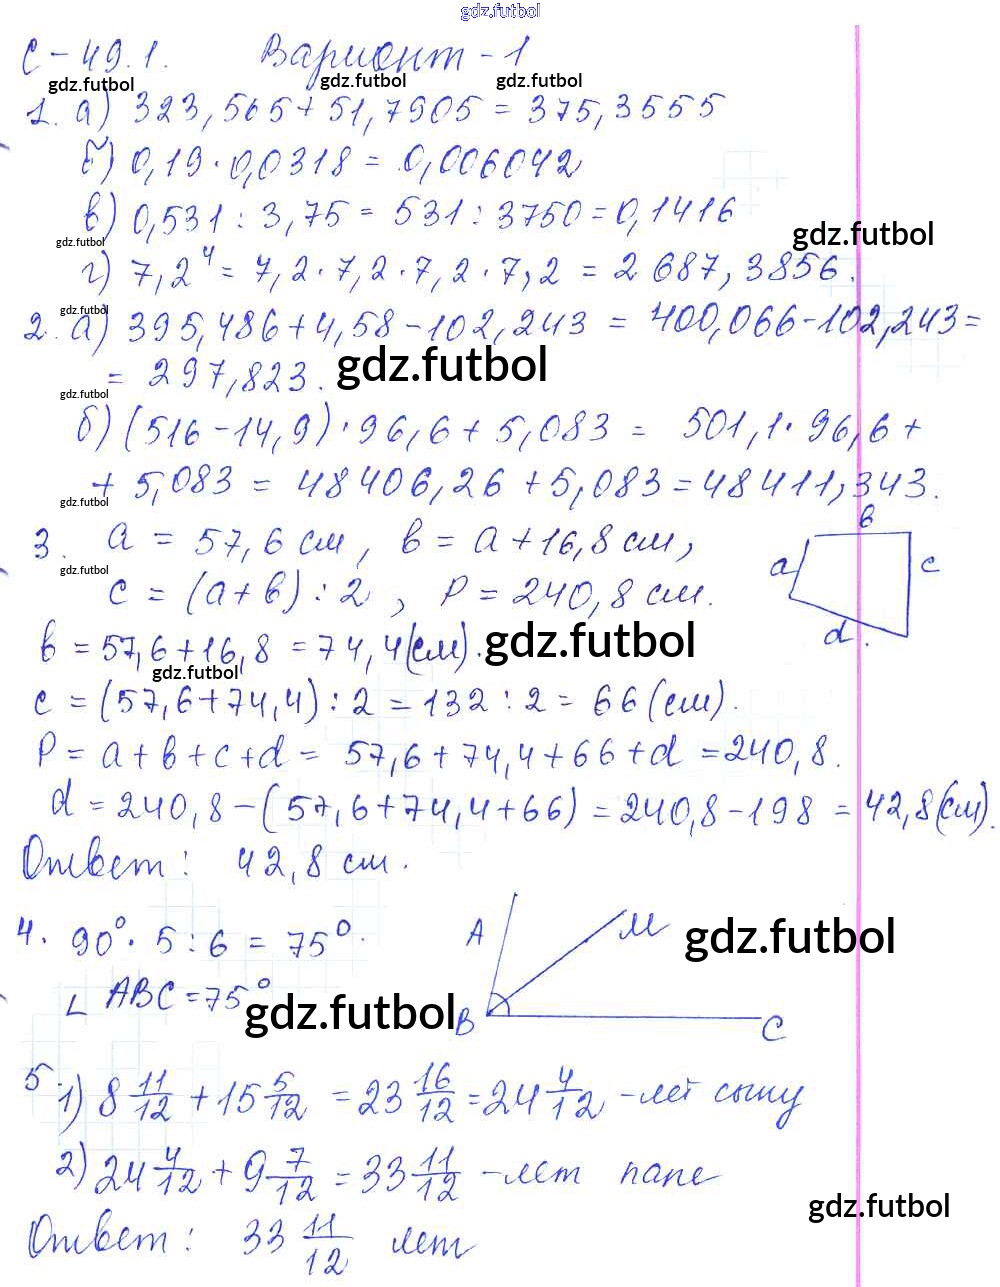 gdz.futbol
С-49.1. Вариант-1
gdz.futbol gdz.futbol gdz.futbol
1. а) 323,565+51,7905=375,3555
б) 0,19·0,0318=0,006042
в) 0,531:3,75=531:3750=0,1416
gdz.futbol gdz.futbol
г) 7,2⁴=7,2·7,2·7,2·7,2=2687,3856.
gdz.futbol
2. а) 395,486+4,58-102,243=400,066-102,243=
=297,823. gdz.futbol
gdz.futbol
б) (516-14,9)·96,6+5,083=501,1·96,6+
+5,083=48406,26+5,083=48411,343.
gdz.futbol
3. a=57,6 см, в=a+16,8 см,
gdz.futbol
c=(a+в):2, P=240,8 см.
в
a
c
d.
в=57,6+16,8=74,4(см). gdz.futbol
gdz.futbol
c=(57,6+74,4):2=132:2=66(см).
P=a+в+c+d=57,6+74,4+66+d=240,8.
d=240,8-(57,6+74,4+66)=240,8-198=42,8(см).
Ответ: 42,8 см.
4. 90°·5:6=75°.
∠ABC=75°
A M
B C
gdz.futbol
gdz.futbol
5 1) 8 11/12+15 5/12=23 16/12=24 4/12-лет сыну
2) 24 4/12+9 7/12=33 11/12-лет папе
gdz.futbol
Ответ: 33 11/12 лет